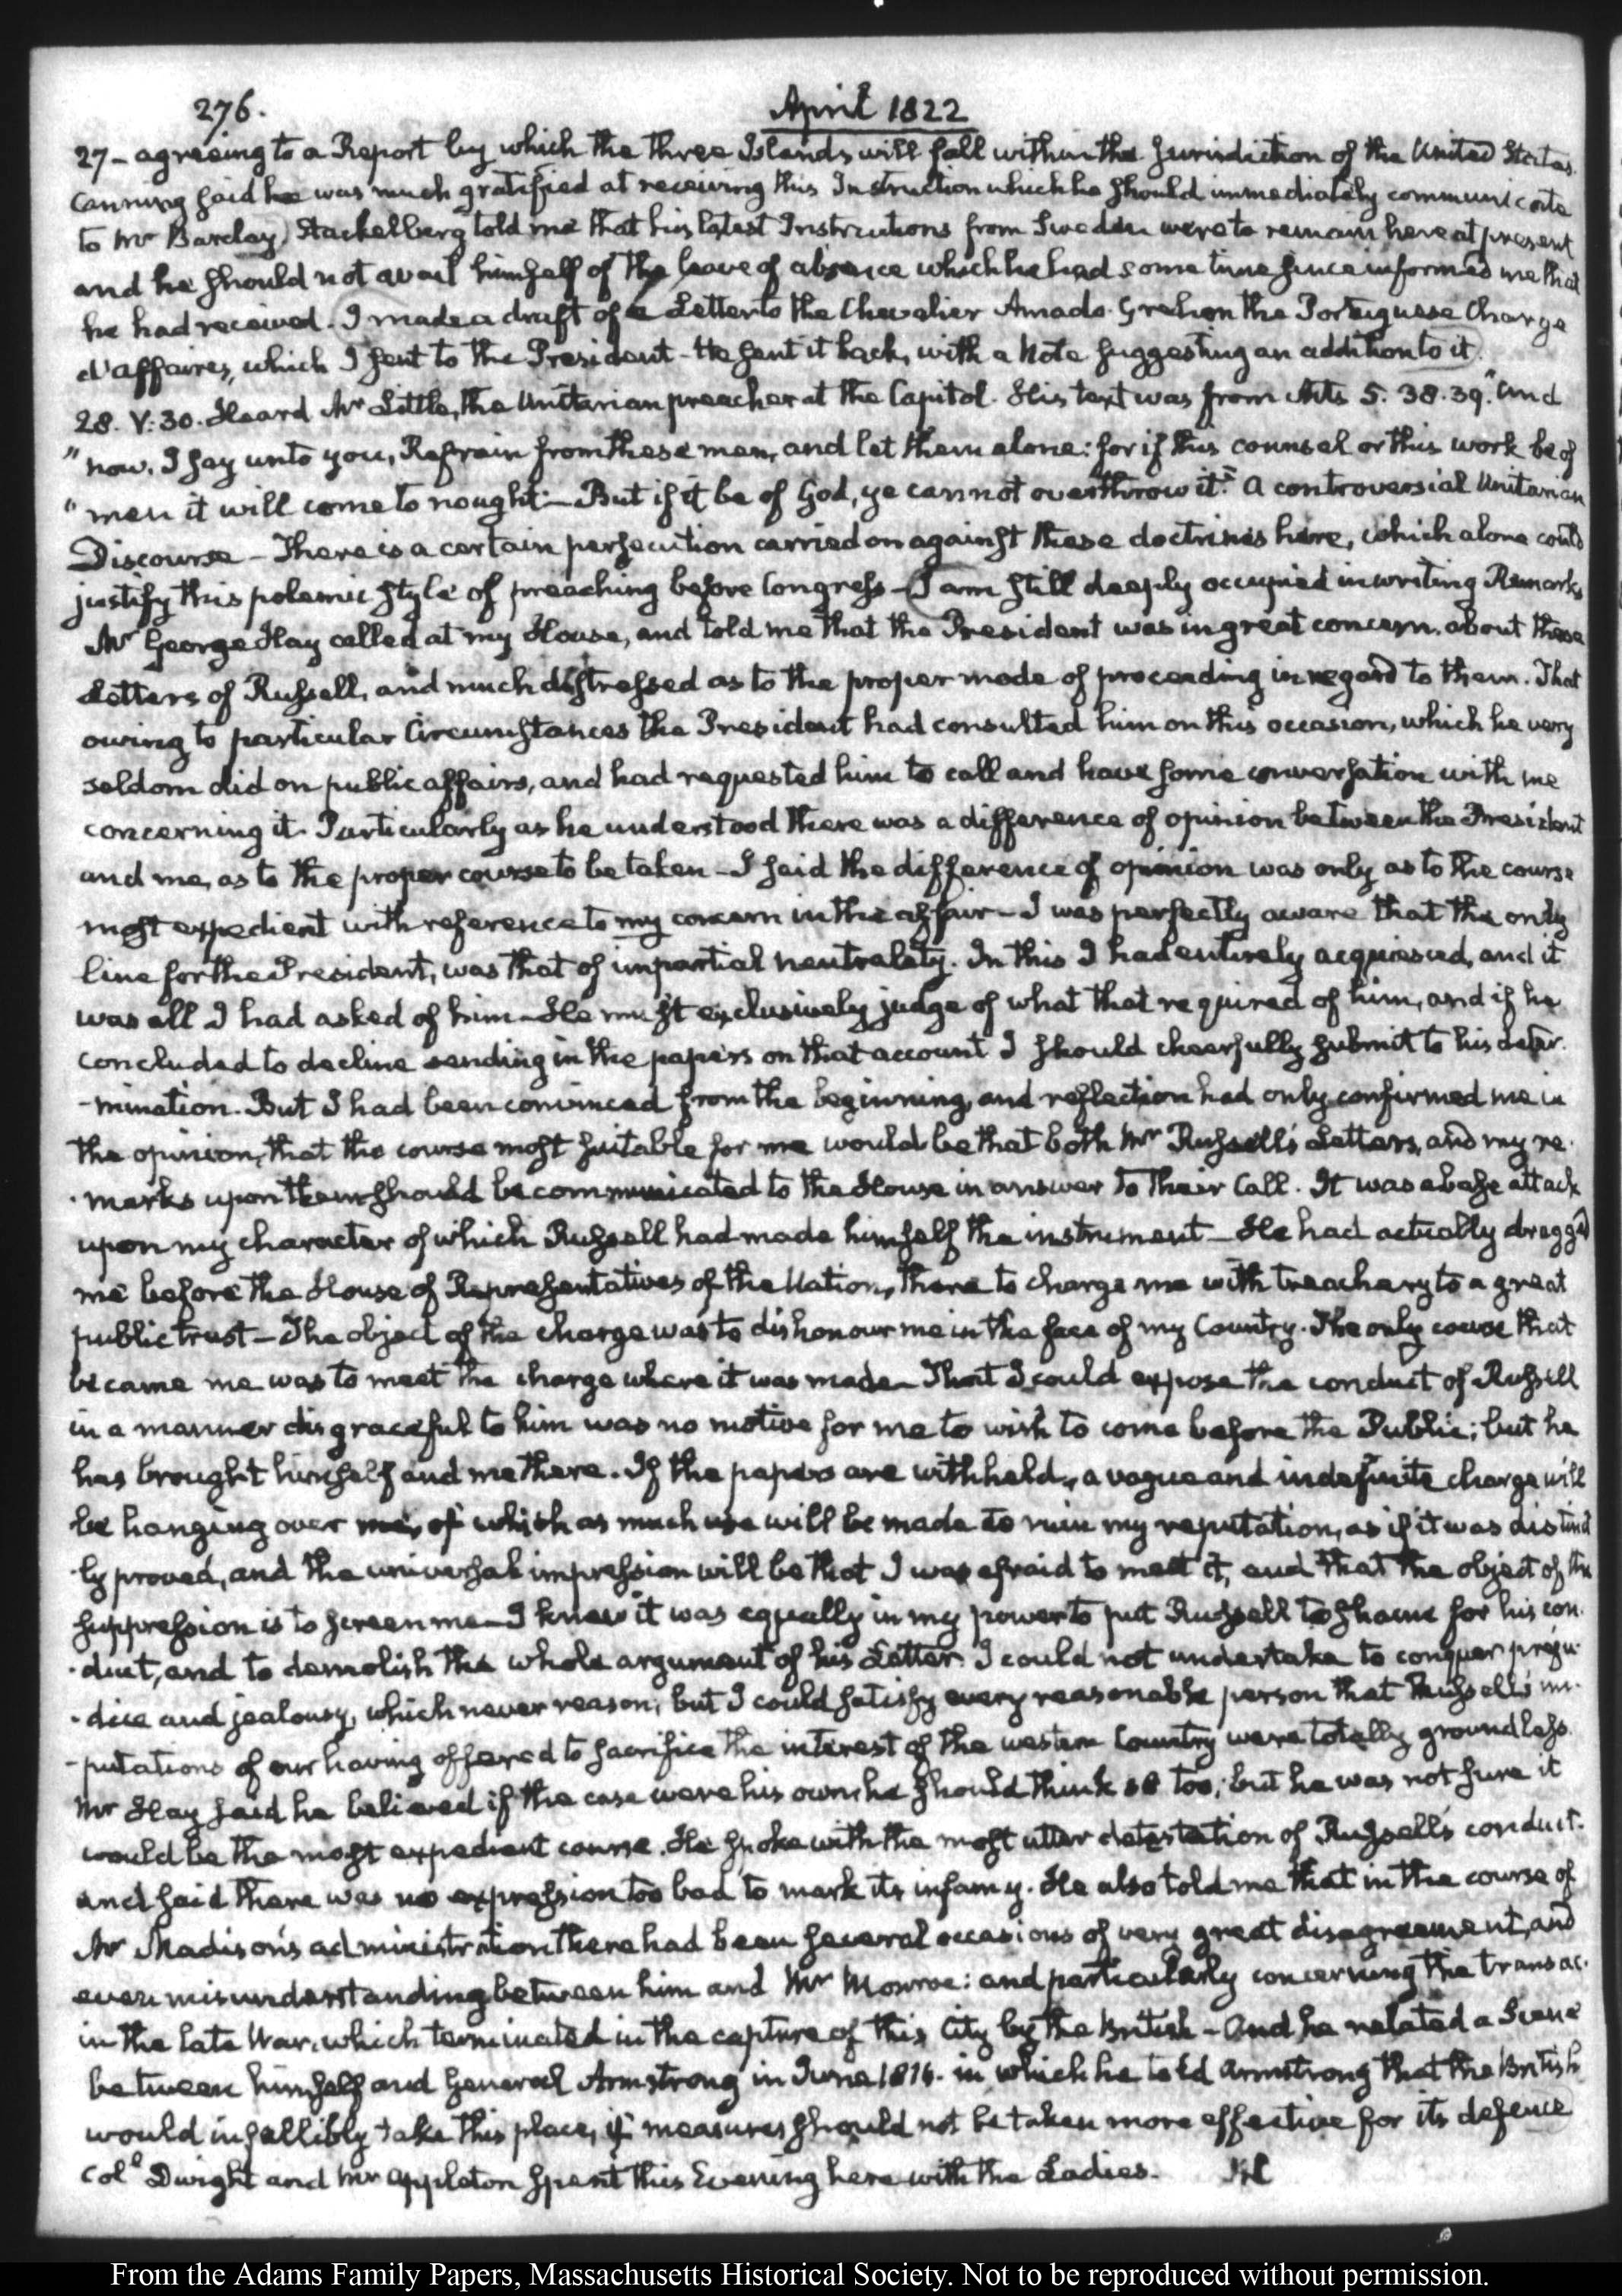 276.
April 1822
27 - agreeing to a Report by which the three Islands will fall within the Jurisdiction of the United States.
Canning said he was much gratified at receiving this Instruction which he should immediately communicate
to Mr Barclay) Stackelberg told me that his latest Instructions from Sweden were to remain here at present
and he should not avail himself of the leave of absence which he had some time since informed me that
he had received. I made a draft of a Letter to the Chevalier Amado Grehon the Portuguese Charge
d'affaires, which I sent to the President - He sent it back, with a Note suggesting an addition to it.
28. V:30. Heard Mr Little, the Unitarian preacher at the Capitol. His text was from Acts 5. 38. 39. "And
"now, I say unto you, Refrain from these men, and let them alone: for if this counsel or this work be of
"men it will come to nought:—But if it be of God, ye cannot overthrow it." A controversial Unitarian
Discourse - There is a certain persecution carried on against these doctrines here, which alone could
justify this polemic style of preaching before Congress - I am still deeply occupied in writing Remarks
Mr George Hay called at my House, and told me that the President was in great concern, about these
Letters of Russell, and much distressed as to the proper mode of proceeding in regard to them. That
owing to particular Circumstances the President had consulted him on this occasion, which he very
seldom did on public affairs, and had requested him to call and have some conversation with me
concerning it. Particularly as he understood there was a difference of opinion between the President
and me, as to the proper course to be taken - I said the difference of opinion was only as to the course
most expedient with reference to my concern in the affair - I was perfectly aware that the only
line for the President, was that of impartial neutrality. In this I had entirely acquiesced, and it
was all I had asked of him - He must exclusively judge of what that required of him, and if he
concluded to decline sending in the papers on that account I should cheerfully submit to his deter-
-mination. But I had been convinced from the beginning, and reflection had only confirmed me in
the opinion, that the course most suitable for me would be that both Mr Russell's Letters, and my re-
-marks upon them should be communicated to the House in answer to their Call. It was a base attack
upon my character of which Russell had made himself the instrument - He had actually dragged
me before the House of Representatives of the Nation, there to charge me with treachery to a great
public trust - The object of the charge was to dishonour me in the face of my Country. The only course that
became me was to meet the charge where it was made - That I could expose the conduct of Russell
in a manner disgraceful to him was no motive for me to wish to come before the Public; but he
has brought himself and me there. If the papers are withheld, a vague and indefinite charge will
be hanging over me, of which as much use will be made to ruin my reputation, as if it was distinct
-ly proved, and the universal impression will be that I was afraid to meet it, and that the object of the
suppression is to screen me - I knew it was equally in my power to put Russell to shame for his con-
-duct, and to demolish the whole argument of his Letter I could not undertake to conquer preju-
-dice and jealousy, which never reason; but I could satisfy every reasonable person that Russell's im-
-putations of our having offered to sacrifice the interest of the western Country were totally groundless.
Mr Hay said he believed if the case were his own he should think so too; but he was not sure it
would be the most expedient course. He spoke with the most utter detestation of Russell's conduct.
and said there was no expression too bad to mark its infamy. He also told me that in the course of
Mr Madison's administration there had been several occasions of very great disagreement, and
even misunderstanding between him and Mr Monroe: and particularly concerning the transac.
in the late War, which terminated in the capture of this City by the British - And he related a Scene
between himself and General Armstrong in June 1814. in which he told Armstrong that the British
would infallibly take this place, if measures should not be taken more effective for its defence
Coll Dwight and Mr Appleton spent this Evening here with the Ladies.
From the Adams Family Papers, Massachusetts Historical Society. Not to be reproduced without permission.